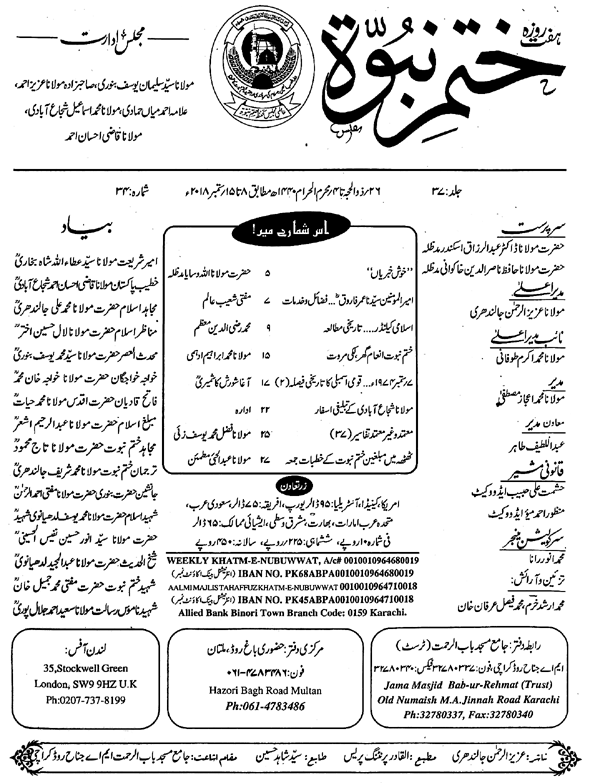 ہفت روزہ
ختم نبوۃ
مجلس ادارت
مولانا سید سلیمان یوسف بنوری، صاحبزادہ مولانا عزیز احمد،
علامہ احمد میاں حمادی، مولانا محمد اسماعیل شجاع آبادی،
مولانا قاضی احسان احمد
جلد: ۳۷
۲۶؍ذوالحجہ تا ۴؍محرم الحرام ۱۴۴۰ھ مطابق ۸ تا ۱۵؍ستمبر ۲۰۱۸ء
شمارہ: ۳۴
سرپرست
حضرت مولانا ڈاکٹر عبدالرزاق اسکندر مدظلہ
حضرت مولانا حافظ ناصر الدین خاکوانی مدظلہ
مدیر اعلیٰ
مولانا عزیز الرحمٰن جالندھری
نائب مدیر اعلیٰ
مولانا محمد اکرم طوفانی
مدیر
مولانا محمد اعجاز مصطفیٰ
معاون مدیر
عبداللطیف طاہر
قانونی مشیر
حشمت علی حبیب ایڈووکیٹ
منظور احمد میو ایڈووکیٹ
سرکولیشن منیجر
محمد انور رانا
تزئین و آرائش:
محمد ارشد خرم، محمد فیصل عرفان خان
اس شمارے میں!
”خوش خبریاں“ ۵ حضرت مولانا اللہ وسایا مدظلہ
امیر المومنین سیدنا عمر فاروقؓ... فضائل و خدمات ۷ مفتی شعیب عالم
اسلامی کیلنڈر... تاریخی مطالعہ ۹ محمد رضی الدین معظم
ختم نبوت انعام گھر، لکی مروت ۱۵ مولانا محمد ابراہیم ادہمی
۷؍ستمبر ۱۹۷۴ء... قومی اسمبلی کا تاریخی فیصلہ (۲) ۱۷ آغا شورش کاشمیریؒ
مولانا شجاع آبادی کے تبلیغی اسفار ۲۲ ادارہ
معتمد و غیر معتمد تفاسیر (۳۷) ۲۵ مولانا فضل محمد یوسف زئی
ٹھٹھہ میں مبلغین ختم نبوت کے خطبات جمعہ ۲۷ مولانا عبدالحئی مطمئن
زرتعاون
امریکا، کینیڈا، آسٹریلیا: ۹۵ ڈالر یورپ، افریقہ: ۷۵ ڈالر، سعودی عرب،
متحدہ عرب امارات، بھارت، مشرق وسطیٰ، ایشیائی ممالک: ۶۵ ڈالر
فی شمارہ ۱۰ روپے، ششماہی: ۲۲۵ روپے، سالانہ: ۴۵۰ روپے
WEEKLY KHATM-E-NUBUWWAT, A/c# 0010010964680019
IBAN NO. PK68ABPA0010010964680019 (انٹرنیشنل بینک اکاؤنٹ نمبر)
AALMI MAJLIS TAHAFFUZ KHATM-E-NUBUWWAT 0010010964710018
IBAN NO. PK45ABPA0010010964710018 (انٹرنیشنل بینک اکاؤنٹ نمبر)
Allied Bank Binori Town Branch Code: 0159 Karachi.
بیاد
امیر شریعت مولانا سید عطاء اللہ شاہ بخاریؒ
خطیب پاکستان مولانا قاضی احسان احمد شجاع آبادیؒ
مجاہد اسلام حضرت مولانا محمد علی جالندھریؒ
مناظر اسلام حضرت مولانا لال حسین اخترؒ
محدث العصر حضرت مولانا سید محمد یوسف بنوریؒ
خواجہ خواجگان حضرت مولانا خواجہ خان محمدؒ
فاتح قادیان حضرت اقدس مولانا محمد حیاتؒ
مبلغ اسلام حضرت مولانا عبدالرحیم اشعرؒ
مجاہد ختم نبوت حضرت مولانا تاج محمودؒ
ترجمان ختم نبوت حضرت مولانا محمد شریف جالندھریؒ
جانشین حضرت بنوری حضرت مولانا مفتی احمد الرحمٰنؒ
شہید اسلام حضرت مولانا محمد یوسف لدھیانوی شہیدؒ
حضرت مولانا سید انور حسین نفیس الحسینیؒ
شیخ الحدیث حضرت مولانا عبدالمجید لدھیانویؒ
شہید ختم نبوت حضرت مفتی محمد جمیل خانؒ
شہید ناموس رسالت مولانا سعید احمد جلال پوریؒ
رابطہ دفتر: جامع مسجد باب الرحمت (ٹرسٹ)
ایم اے جناح روڈ کراچی، فون: ۳۲۷۸۰۳۳۷، فیکس: ۳۲۷۸۰۳۴۰
Jama Masjid Bab-ur-Rehmat (Trust)
Old Numaish M.A.Jinnah Road Karachi
Ph:32780337, Fax:32780340
مرکزی دفتر: حضوری باغ روڈ، ملتان
فون: ۰۶۱-۴۷۸۳۴۸۶
Hazori Bagh Road Multan
Ph:061-4783486
لندن آفس:
35,Stockwell Green
London, SW9 9HZ U.K
Ph:0207-737-8199
ناشر: عزیز الرحمٰن جالندھری مطبع: القادر پرنٹنگ پریس طابع: سید شاہد حسین مقام اشاعت: جامع مسجد باب الرحمت ایم اے جناح روڈ کراچی